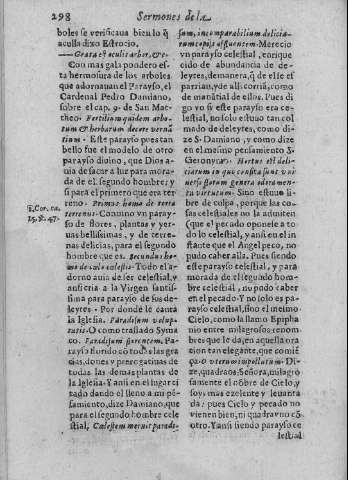 298
Sermones de la
boles se verificaua bien lo q̃
acullà dixo Estrocio.
Grata & oculis arbor, &c.
Con mas gala pondero esta
hermosura de los arboles
que adornauan el Parayso, el
Cardenal Pedro Damiano,
sobre el cap. 9. de San Mattheo.
Fertilium quidem arborum
& herbarum decore vernãtium.
Este parayso pues tan
bello fue el modelo de otro
parayso diuino, que Dios auia
de sacar à luz para morada
de el segundo hombre; y
si para el primero que era terreno
Primus homo de terra
terrenus. Conuino vn parayso
de flores, plantas y yeruas
bellissimas, y de terrenas
delicias, para el segundo
hombre que es. Secundus homo
de cœlo cœlestis. Todo el adorno
auia de ser celestial, y
ansi seria a la Virgen santissima
para parayso de sus deleytes.
Por donde le canta
la Iglesia. Paradisum voluptatis.
O como trasladò Symaco.
Paradisum florentem. Parayso
florido cõ todas las gracias,
dones y prerogatiuas de
todas las demas plantas de
la Iglesia. Y ansi en el lugar citado
dando el lleno a mi pẽsamiento,
dize Damiano, que
para el segundo hombre celestial,
Cælestem meruit paradisum,
incomparabilium deliciarum
copijs affluentem. Merecio
vn parayso celestial, enriquecido
de abundancia de
deleytes, demanera, q̃ de el se esparzian,
y de alli corriã, como
de manãtial de ellos. Pues digo
yo si este parayso era celestial,
no solo estuuo tan colmado
de deleytes, como dize
S. Damiano, y como dize
en el mesmo pensamiento S.
Geronymo. Hortus est deliciarum
in quo consita sunt vniuersa
florum genera & odoramenta
virtutum. Sino estuuo libre
de culpa, porque las cosas
celestiales no la admiten
(que el pecado oponese a todo
lo celestial, y ansi en el instante
que el Angel peco, no
pudo caber alla. Pues siendo
este parayso celestial, y para
morada de el segundo hombre
celestial, no pudo caber
en el pecado. Y no solo es parayso
celestial, sino el mesmo
Cielo, como la llamo Epiphanio
entre milagrosos renombres
que le da, en aquella oracion
tan elegante, que comiẽça.
O vterum impollutum. Dize,
quadraos, Señora, milagrosamente
el nõbre de Cielo, y
soys mas excelente y leuantada:
pues Cielo y pecado no
vienen bien, ni quadra vno cõ
otro. Y ansi siendo parayso celestial
1. Cor. ca.
15. v. 47.